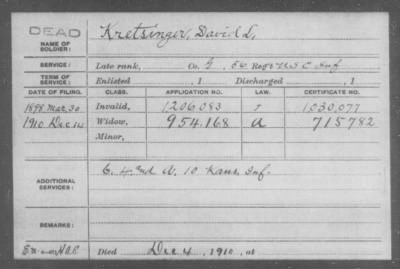 DEAD
NAME OF SOLDIER: Kretsinger, David L.
SERVICE: Late rank, Co. G, 56 Reg't U.S.C. Inf
TERM OF SERVICE: Enlisted , 1 Discharged , 1
DATE OF FILING. CLASS. APPLICATION NO. LAW. CERTIFICATE NO.
1898 Mar. 30 Invalid, 1206,083 1,030,077
1910 Dec 14 Widow, 954,168 a 715782
Minor,
ADDITIONAL SERVICES: 10 Kans. Inf.
REMARKS:
Died Dec 4, 1910, at